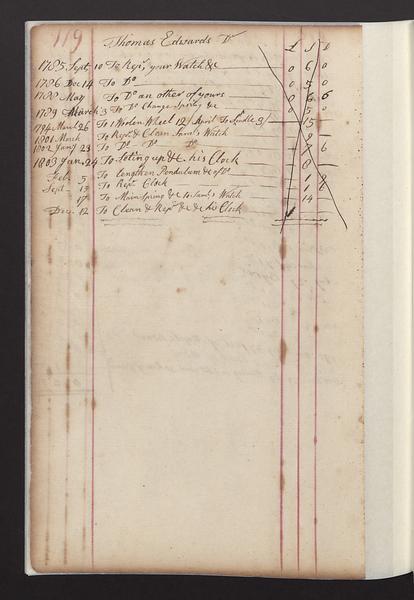 119 Thomas Edwards Dr
£ s d
1785 Sept 10 To Repr your Watch &c 0 6 0
1786 Dec 14 To Do 0 5 0
1788 May To Do an other of yours 0 6 6
1789 March 3 To Do Change Spring &c 0 5 0
1794 March 26 To 1 Wolen Wheel 12/ April To Spindle 3/ 15
1801 March To Repr & Clean Saml's Watch 9
1802 Jany 23 To Do Do Do 7 6
1803 Jan 24 To Seting up &c his Clock
Feb 5 To lengthen Pendulum &c of Do 1
Sept 13 To Repr Clock 1
17 To Main Spring &c to Saml's Watch 14
Dec. 12 To Clean & Repr &c &c his Clock